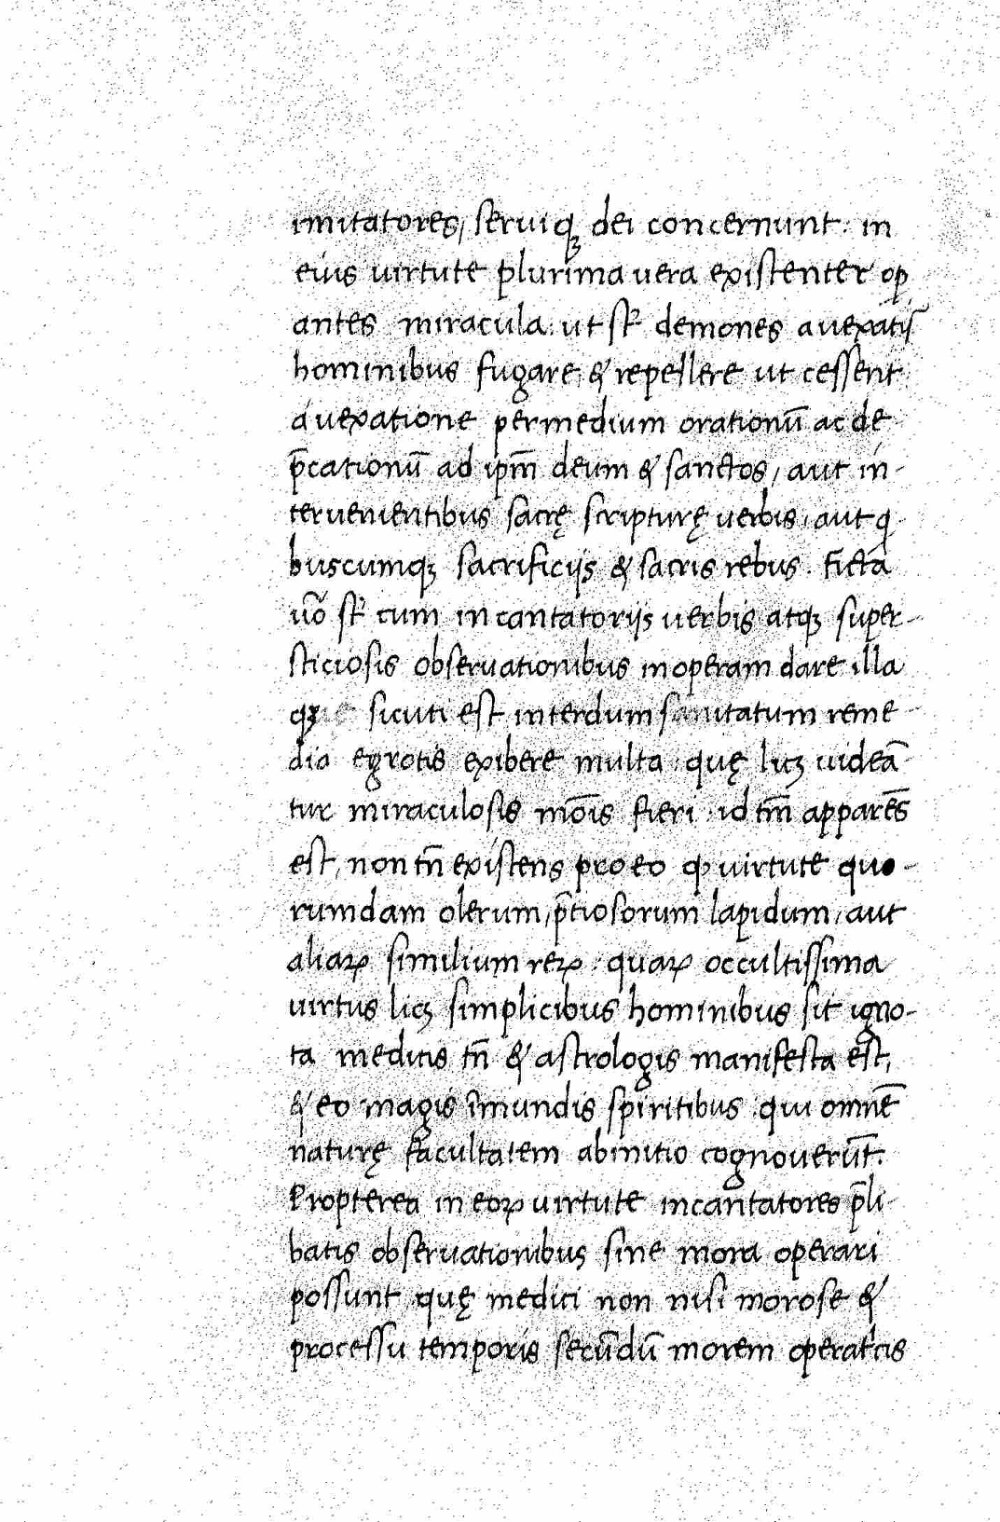 imitatores, seruiqꝫ dei concernunt: in
eius uirtute plurima uera existenter oꝑ
antes miracula: ut sꝉ demones a uexatis
hominibus fugare & repellere ut cessent
a uexatione per medium orationū ac de
p̄cationū ad ip̄m deum & sanctos, aut in-
teruenientibus sacrę scripturę uerbis, aut q
buscumqꝫ sacrificijs & sacris rebus. Ficta
uo᷃ sꝉ cum incantatorijs uerbis atqꝫ super-
sticiosis obseruationibus in operam dare illa
qꝫ sicuti est interdum sanitatum reme-
dia egrotis exibere multa: quę licꝫ uideā-
tur miraculosis mōis fieri: id tm̄ apparēs
est, non tn̄ existens pro eo ꝙ uirtute quo-
rumdam olerum, p̄tiosorum lapidum, aut
aliaꝝ similium reꝝ: quaꝝ occultissima
uirtus licꝫ simplicibus hominibus sit igno-
ta medicis tn̄ & astrologis manifesta est,
& eo magis īmundis spiritibus qui omnē
naturę facultatem ab initio cognouerūt.
Propterea in eoꝝ uirtute incantatores p̄li-
batis obseruationibus sine mora operari
possunt quę medici non nisi morose &
processu temporis secūdū morem operat̄cis